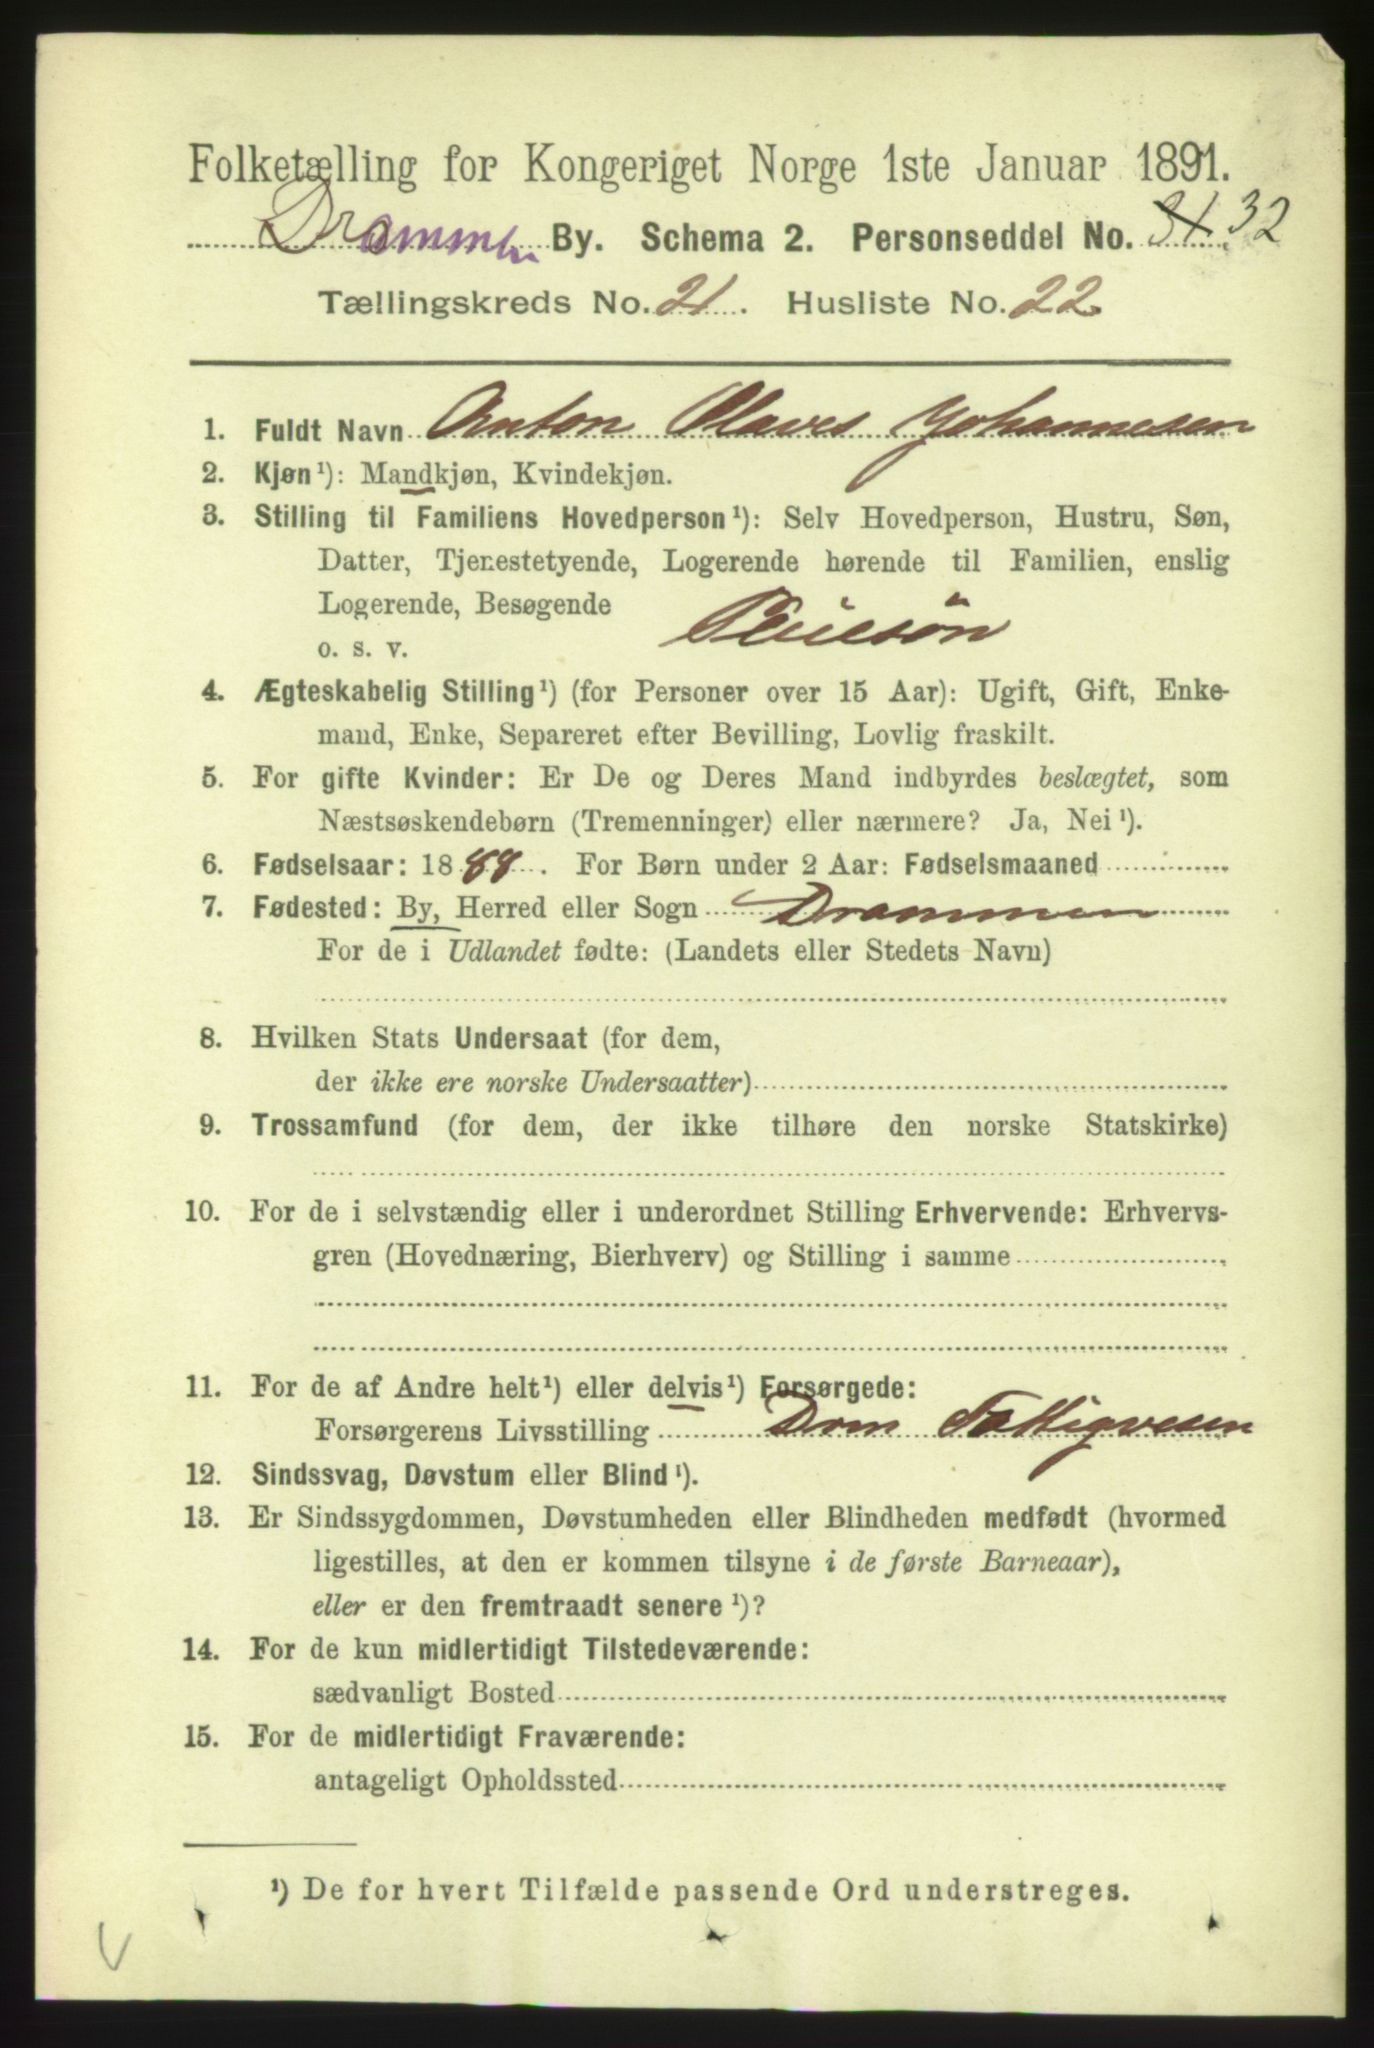 Folketælling for Kongeriget Norge 1ste Januar 1891.
Drammen By. Schema 2. Personseddel No. 31 32
Tællingskreds No. 21. Husliste No. 22
1. Fuldt Navn Anton Olaves Johannesen
2. Kjøn¹): Mandkjøn, Kvindekjøn.
3. Stilling til Familiens Hovedperson¹): Selv Hovedperson, Hustru, Søn,
Datter, Tjenestetyende, Logerende hørende til Familien, enslig
Logerende, Besøgende
o. s. v. Pleiesøn
4. Ægteskabelig Stilling¹) (for Personer over 15 Aar): Ugift, Gift, Enke-
mand, Enke, Separeret efter Bevilling, Lovlig fraskilt.
5. For gifte Kvinder: Er De og Deres Mand indbyrdes beslægtet, som
Næstsøskendebørn (Tremenninger) eller nærmere? Ja, Nei¹).
6. Fødselsaar: 1888. For Børn under 2 Aar: Fødselsmaaned
7. Fødested: By, Herred eller Sogn Drammen
For de i Udlandet fødte: (Landets eller Stedets Navn)
8. Hvilken Stats Undersaat (for dem,
der ikke ere norske Undersaatter)
9. Trossamfund (for dem, der ikke tilhøre den norske Statskirke)
10. For de i selvstændig eller i underordnet Stilling Erhvervende: Erhvervs-
gren (Hovednæring, Bierhverv) og Stilling i samme
11. For de af Andre helt¹) eller delvis¹) Forsørgede:
Forsørgerens Livsstilling Drm Fattigvesen
12. Sindssvag, Døvstum eller Blind¹).
13. Er Sindssygdommen, Døvstumheden eller Blindheden medfødt (hvormed
ligestilles, at den er kommen tilsyne i de første Barneaar),
eller er den fremtraadt senere¹)?
14. For de kun midlertidigt Tilstedeværende:
sædvanligt Bosted
15. For de midlertidigt Fraværende:
antageligt Opholdssted
¹) De for hvert Tilfælde passende Ord understreges.